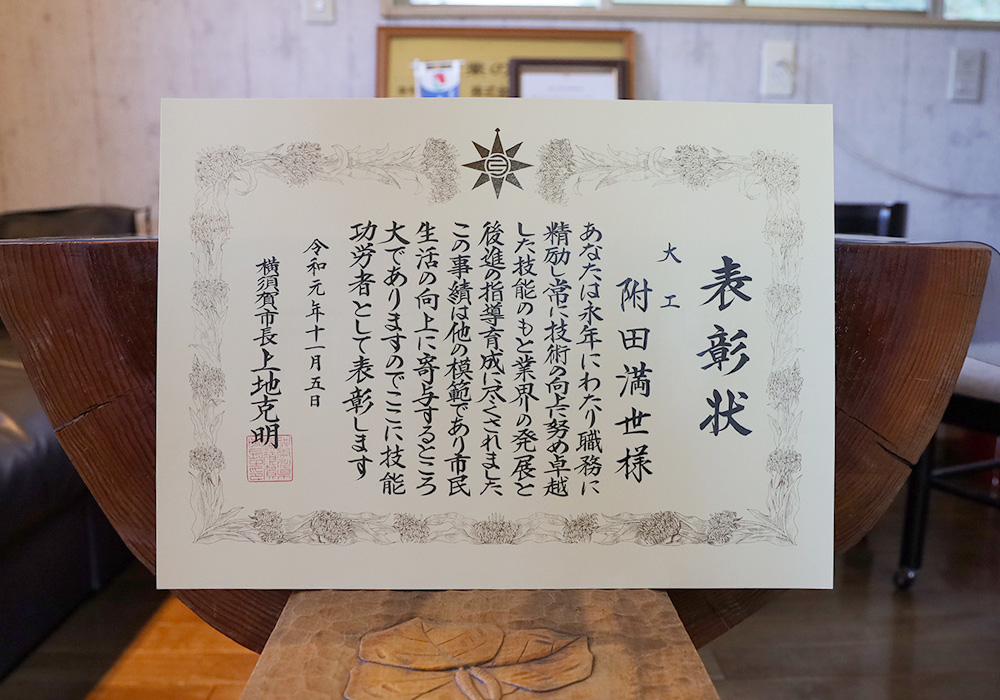 表彰状
大工
附田満世様
あなたは永年にわたり職務に
精励し常に技術の向上に努め卓越
した技能のもと業界の発展と
後進の指導育成に尽くされました
この事績は他の模範であり市民
生活の向上に寄与するところ
大でありますのでここに技能
功労者として表彰します
令和元年十一月五日
横須賀市長上地克明